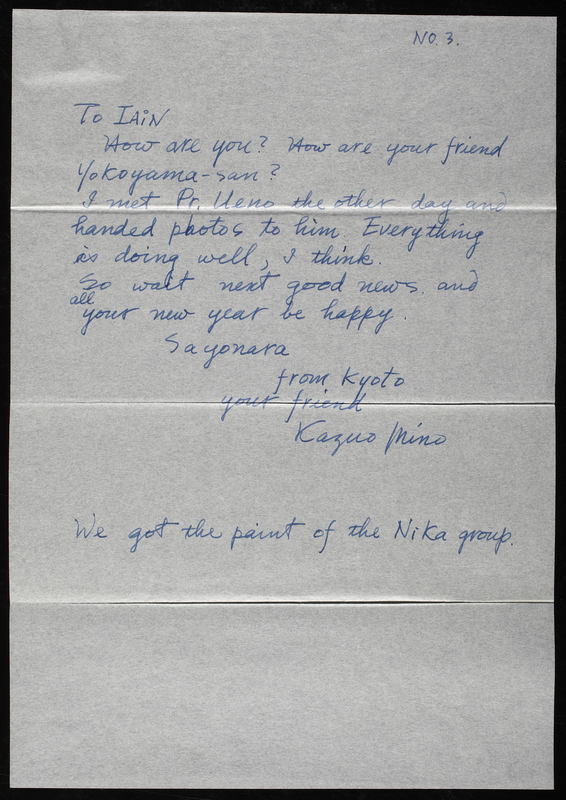 NO. 3.
To IAiN
How are you? How are your friend
Yokoyama-san?
I met Pr. Ueno the other day and
handed photos to him. Everything
is doing well, I think.
So wait next good news. and
all
your new year be happy.
Sayonara
from Kyoto
your friend
Kazuo Mino
We got the paint of the Nika group.